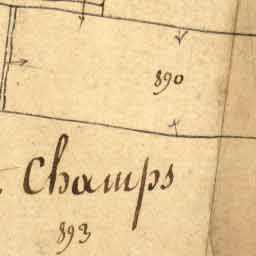 890
Champs
893